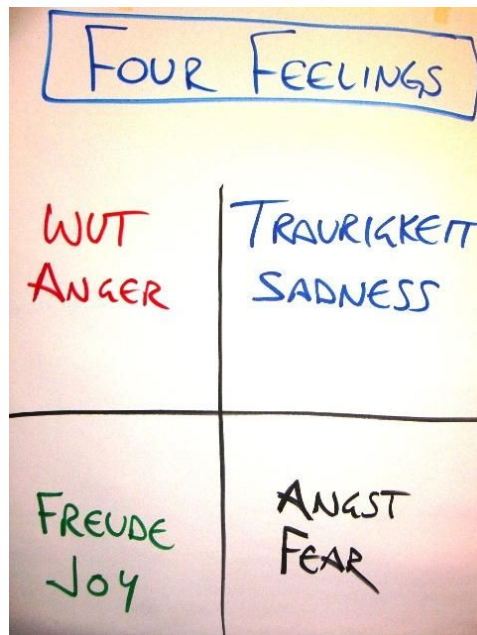 FOUR FEELINGS
WUT
ANGER
TRAURIGKEIT
SADNESS
FREUDE
JOY
ANGST
FEAR